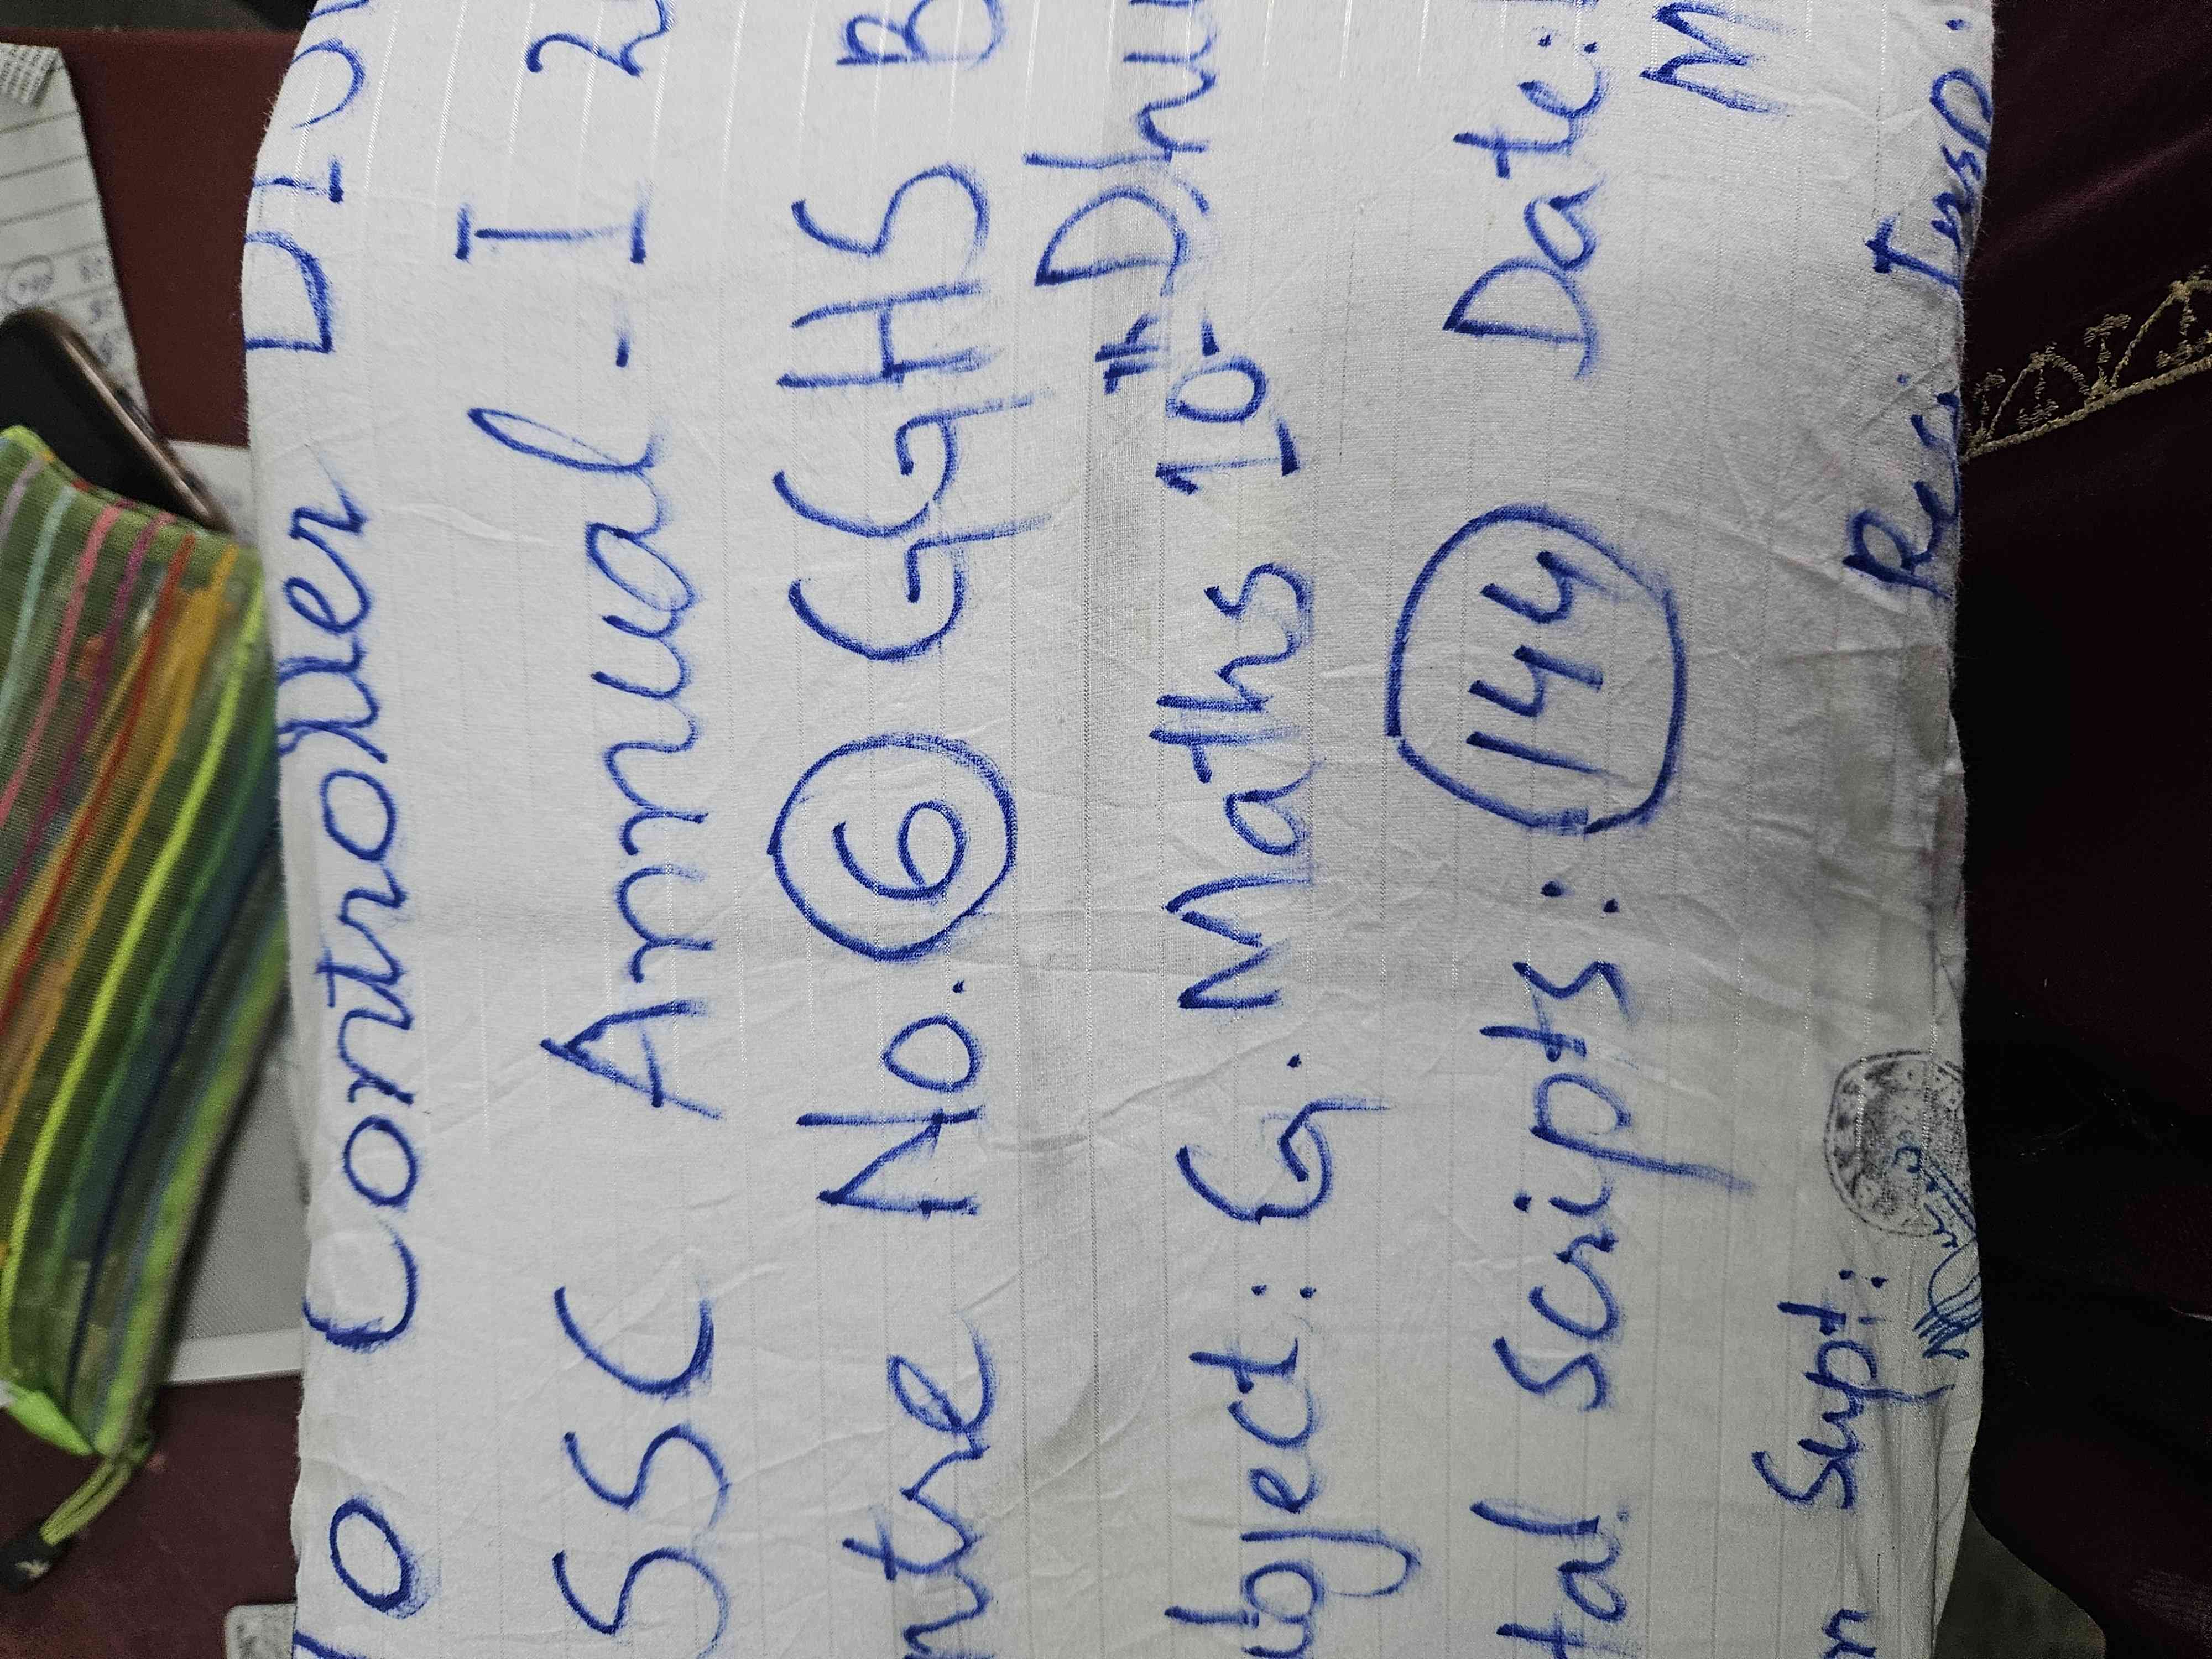 To Controller
SSC Annual - I
ntre No. 6 GGHS B
ubject: G. Maths 10th Dhu
tal Scripts: 144 Date:
m Supt: Res. Insp.